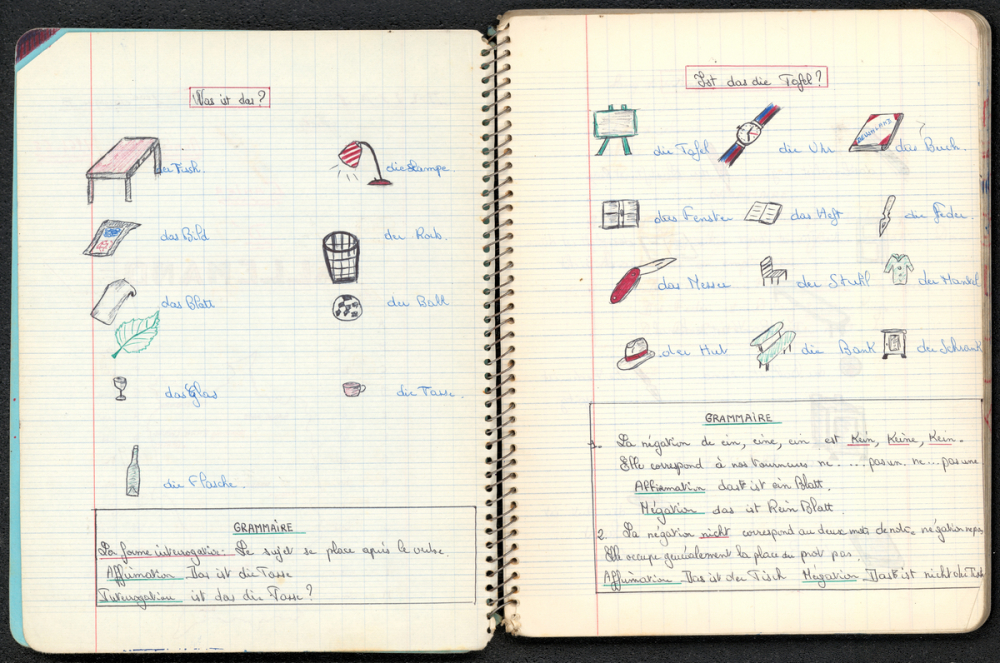 Was ist das?
der Tisch.
die Lampe.
das Bild
der Korb.
das Blatt
der Ball
das Glas
die Tasse.
die Flasche.
GRAMMAIRE
La forme interrogative: Le sujet se place après le verbe
Affirmation Das ist die Tasse
Interrogation ist das die Tasse?
Ist das die Tafel?
die Tafel
die Uhr
das Buch.
das Fenster
das Heft
die Feder.
das Messer
der Stuhl
der Mantel
der Hut
die Bank
der Schrank
GRAMMAIRE
1. La négation de ein, eine, ein est Kein, Keine, Kein.
Elle correspond à nos tournures ne .... pas un. ne... pas une
Affirmation das ist ein Blatt.
Négation das ist Kein Blatt.
2. La négation nicht correspond aux deux mots de notre négation ne pas
Elle occupe généralement la place du mot pas.
Affirmation Das ist der Tisch Négation Das ist nicht der Tisch